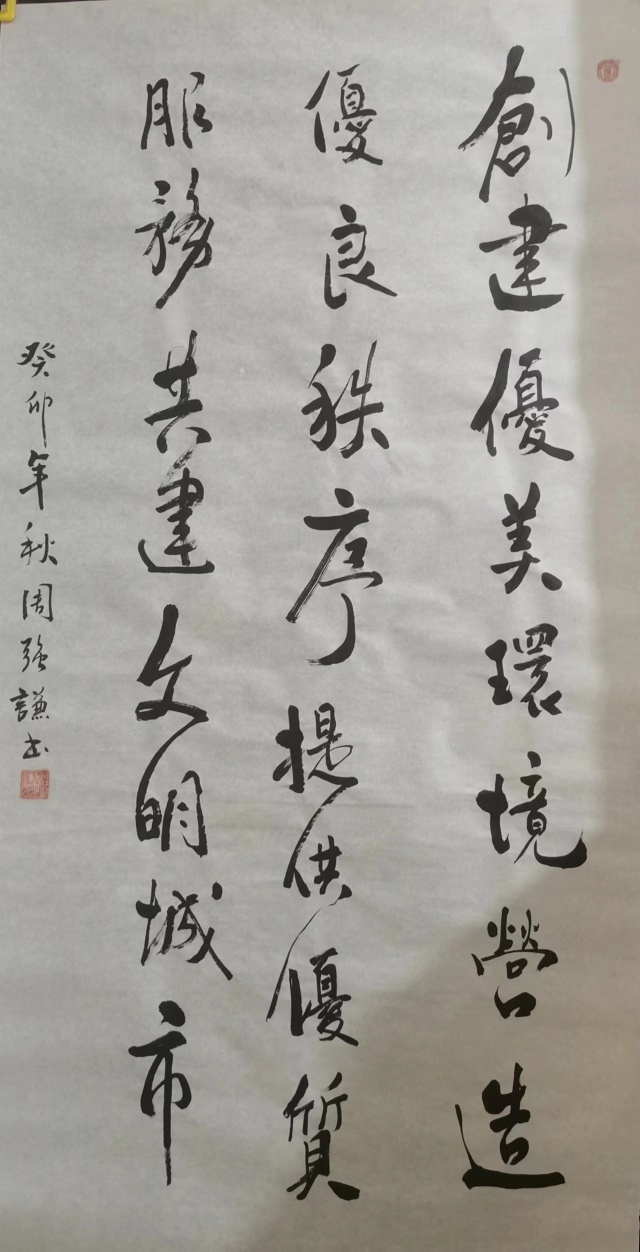 創建優美環境營造
優良秩序提供優質
服務共建文明城市
癸卯年秋周强謙书